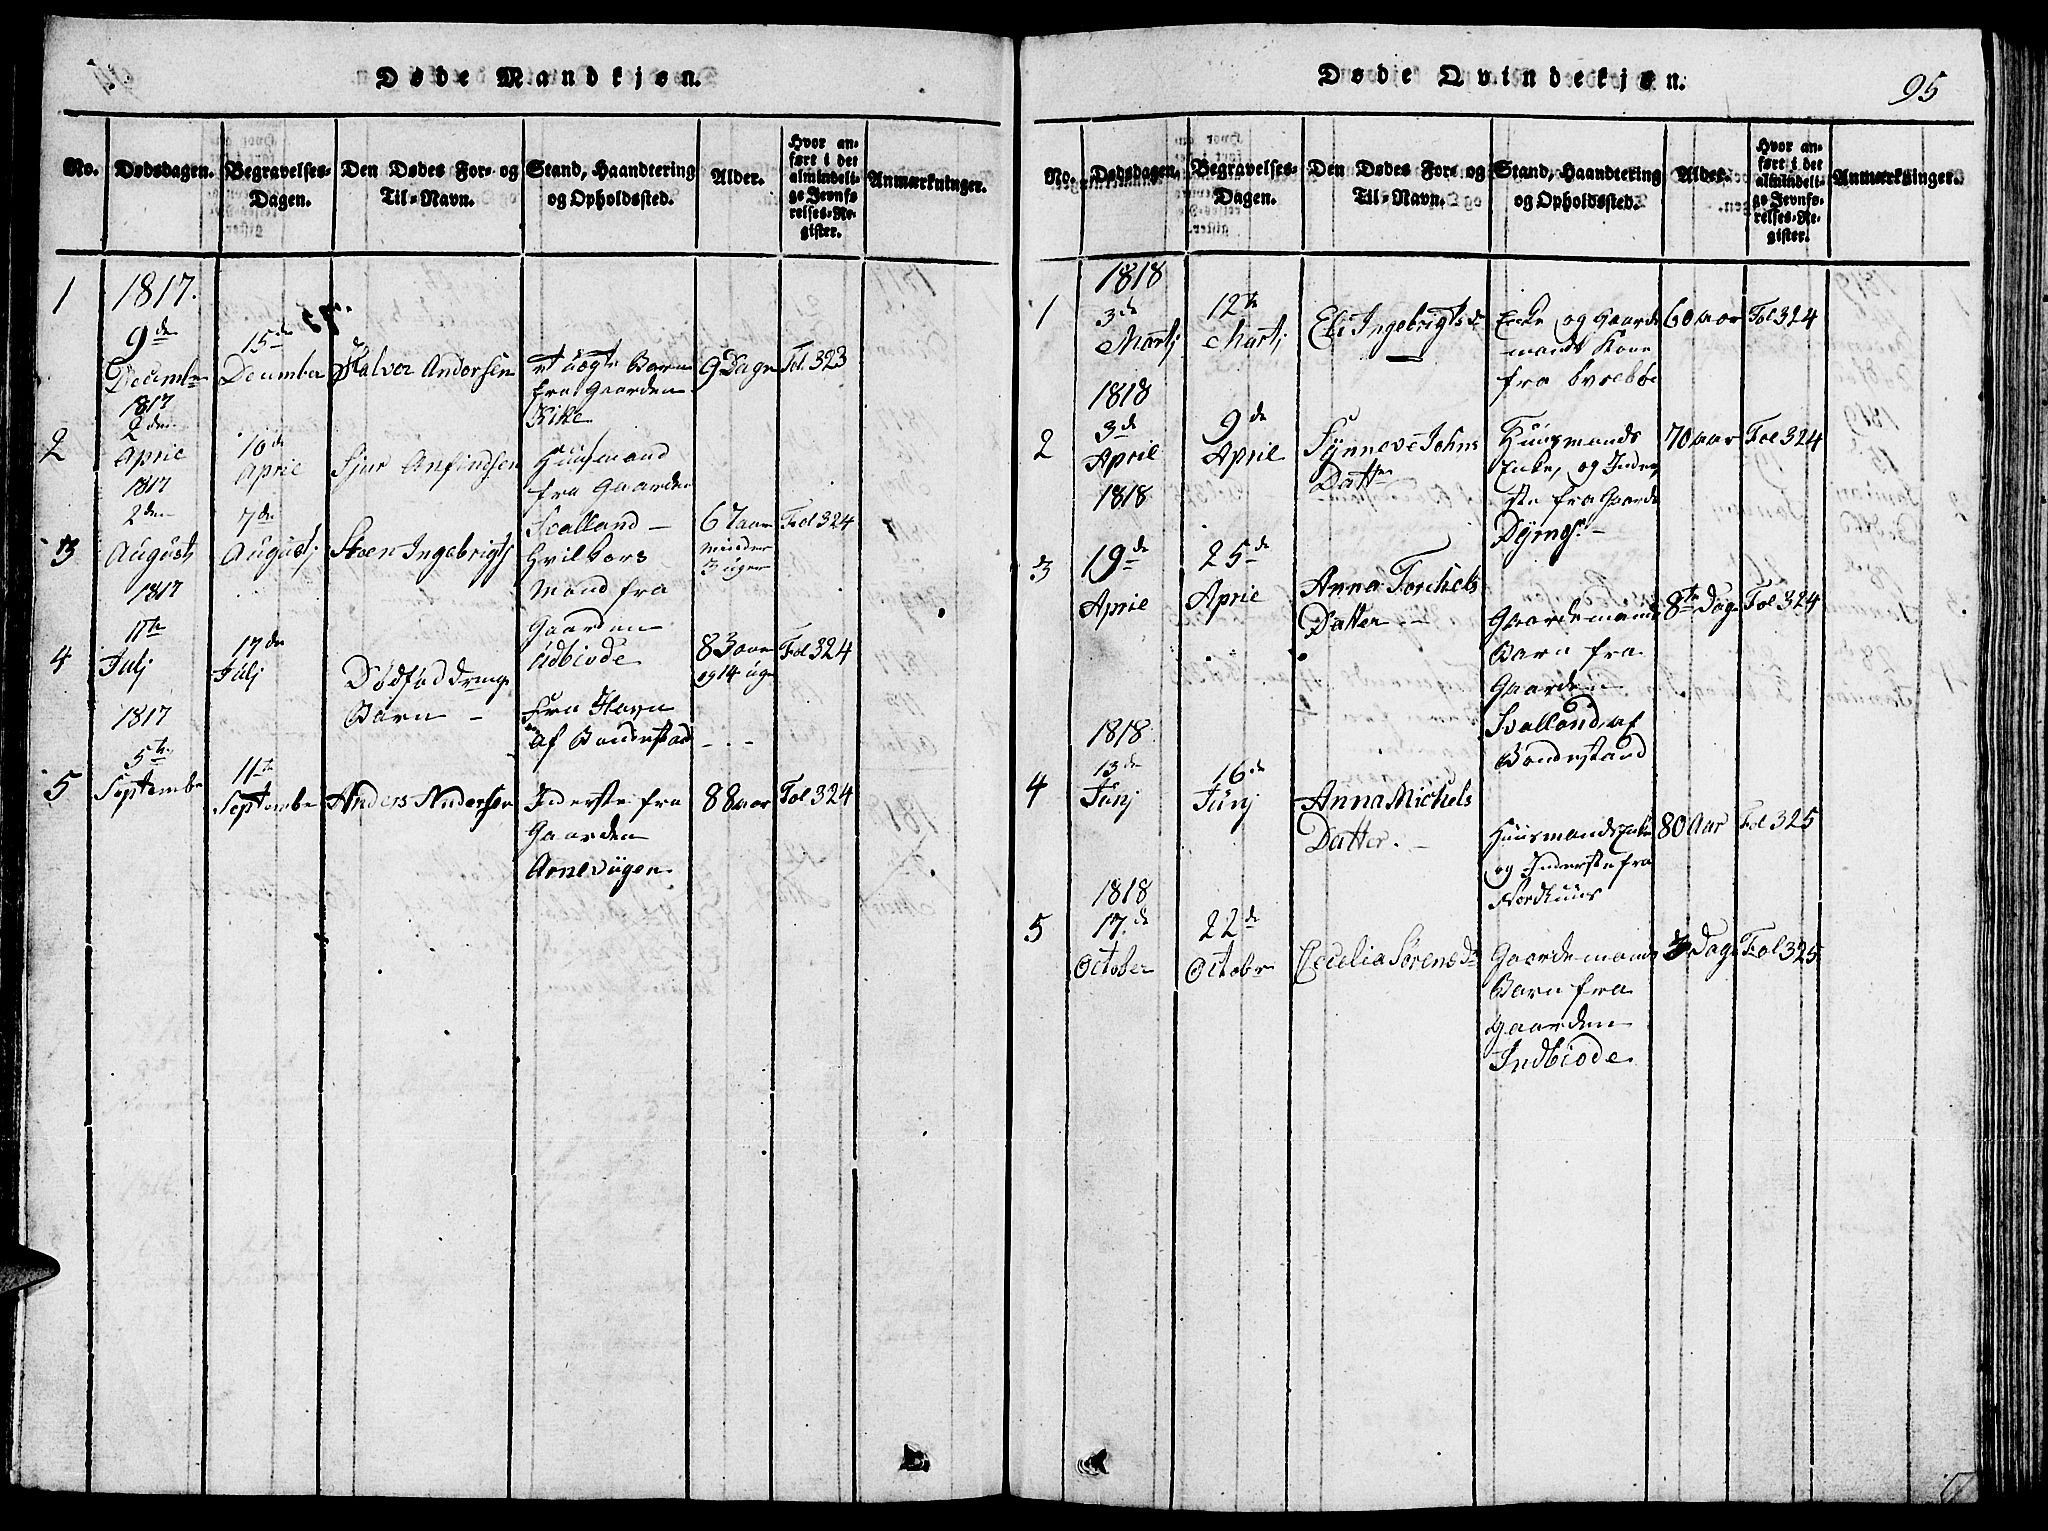 Døde Mandkjøn.
No.
Dødsdagen.
Begravelses-
Dagen.
Den Dødes For- og
Til-Navn.
Stand, Haandtering
og Opholdssted.
Alder.
Hvor an-
ført i det
almindeli-
ge Jevnfø-
relses-Re-
gister.
Anmærkninger.
1
1817.
9de
December
15de
December
Halver Andersen
et ægte Barn
fra Gaarden
Kike
9 Dage
Fol. 323
2
1817
2den
April
10de
April
Sjur Anfindsen
Huusmand
fra Gaarden
Svalland —
67 aar
minder
3 uger
Fol 324
3
1817
2den
August
7de
August
Steen Ingebrigts
Hvilkors
Mand fra
Gaarden
Udbiode
83 aar
og 14 uge
Fol 324
4
1817
11te
Julj
17de
Julj
Dødfød Drenge
Barn —
Fra Havn
af Bondestad
— . —
5
1817
5te
Septembe
11te
Septembe
Anders Andersen
Inderste fra
Gaarden
Arneviigen
88 aar
Fol 324
Døde Qvindekjøn.
95
No.
Dødsdagen.
Begravelses-
Dagen.
Den Dødes For- og
Til-Navn.
Stand, Haandtering
og Opholdssted.
Alder.
Hvor an-
ført i det
almindeli-
ge Jevnfø-
relses-Re-
gister.
Anmærkninger.
1
1818
3de
Martj
12te
Martj
Eli Ingebrigtsd
Enke og Gaarde
mands Kone
fra
60 aar
Fol 324
2
1818
3de
April
9de
April
Synneve Johns
Datter
Huusmands
Enke, og Inder
ste fra Gaarde
70 aar
Fol 324
3
1818
19de
April
25de
April
Anna Torchels
Datter —
Gaardemands
Barn fra
Gaarden
Svalland, af
Bondestand
8te Dage
Fol 324
4
1818
13de
Junj
16de
Junj
Anna Michels
Datter. —
Huusmands Enke
og Inderste fra
Nordhuus
80 Aar
Fol 325
5
1818
17de
October
22de
Octobr
Cecelia Sørensd
Gaardemands
Barn fra
Gaarden
Indbiode
3 Dage
Fol 325